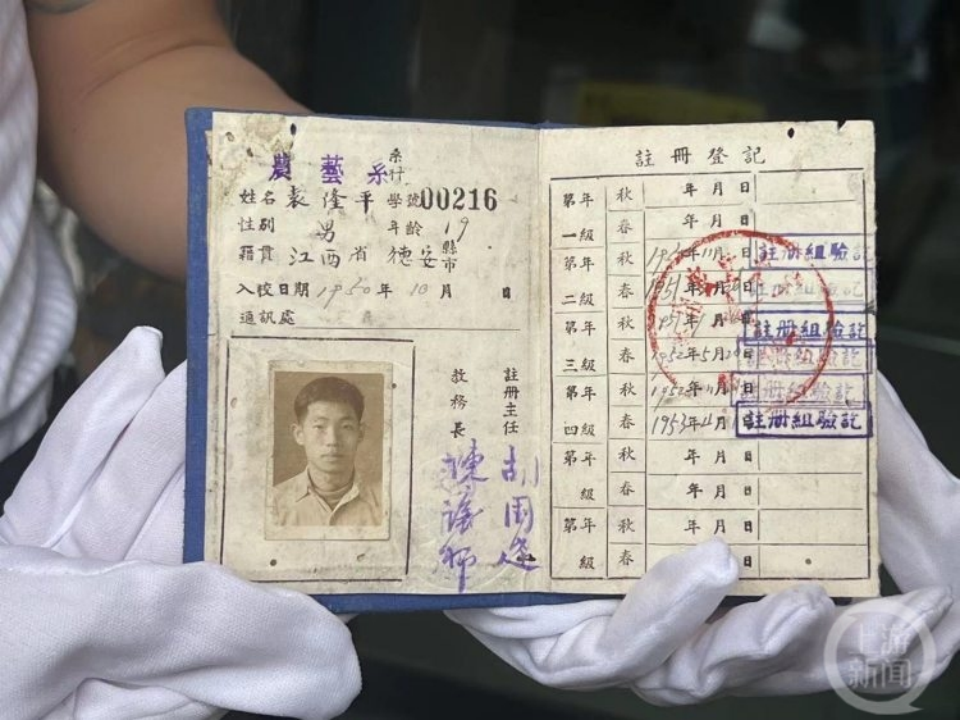 農藝系
系
行
姓名 袁隆平 學號00216
性別 男 年齡 19
籍貫 江西省 德安縣
市
入校日期 1950年10月 日
通訊處
教務長
註冊主任
註冊登記
第 年 秋 年 月 日
一級 春 年 月 日
第 年 秋 年11月 日 註册組驗訖
二級 春 1951年 月 日 註册組驗訖
第 年 秋 1951年9月 日 註册組驗訖
三級 春 1952年5月 日 註册組驗訖
第 年 秋 1952 註册組驗訖
四級 春 1953年4月 日 註册組驗訖
第 年 秋 年 月 日
級 春 年 月 日
第 年 秋 年 月 日
級 春 日
上游
新闻